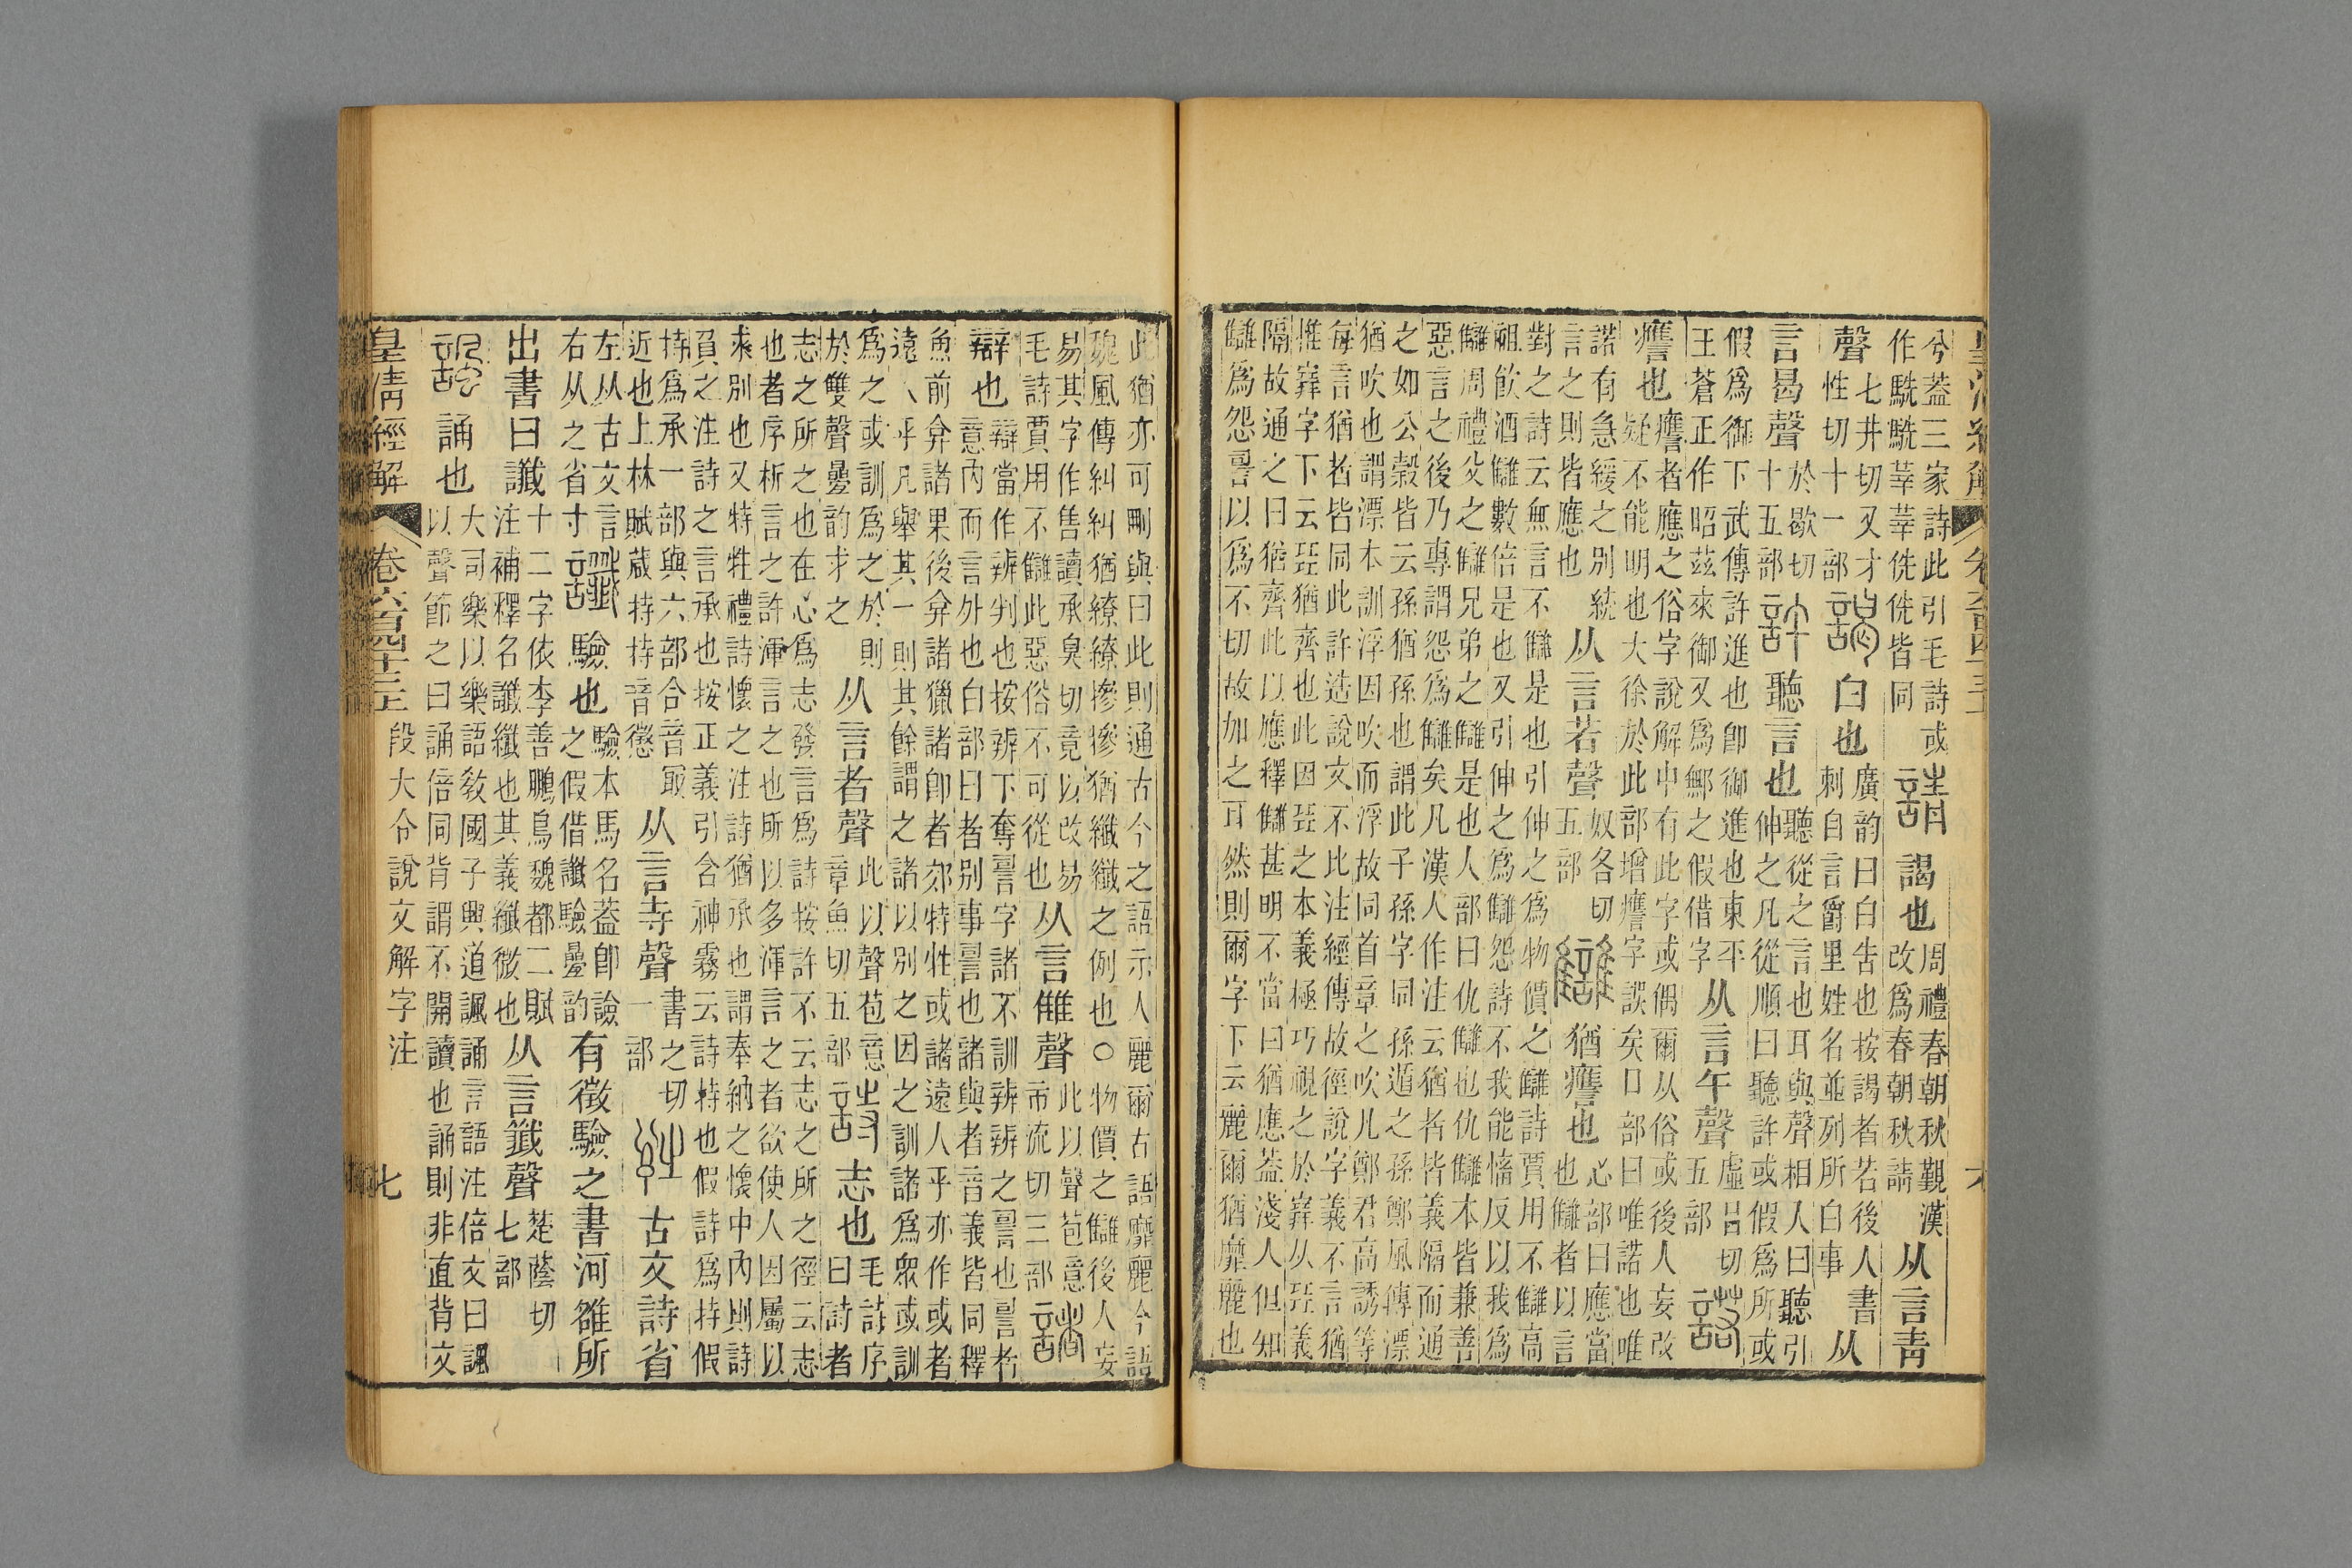 皇清經解 卷六百四十三上 六
兮葢三家詩此引毛詩或
作駪駪莘莘侁侁皆同
請 謁也
周禮春朝秋覲漢
改爲春朝秋請
从言靑
聲
七井切又才
性切十一部
謁 白也
廣韵曰白告也按謁者若後人書
刺自言爵里姓名並列所白事
从
言曷聲
於歇切
十五部
許 聽言也
聽從之言也耳與聲相人曰聽引
伸之凡從順曰聽許或假爲所或
假爲御下武傳許進也卽御進也東平
王蒼正作昭茲來御又爲鄦之假借字
从言午聲
虛呂切
五部
諾
譍也
譍者應之俗字說解中有此字或偶爾从俗或後人妄改
疑不能明也大徐於此部增譍字誤矣口部曰唯諾也唯
諾有急緩之別統
言之則皆應也
从言若聲
奴各切
五部
讎 猶譍也
心部曰應當
也讎者以言
對之詩云無言不讎是也引伸之爲物價之讎詩賈用不讎高
祖飮酒讎數倍是也又引伸之爲讎怨詩不我能慉反以我爲
讎周禮父之讎兄弟之讎是也人部曰仇讎也仇讎本皆兼善
惡言之後乃專謂怨爲讎矣凡漢人作注云猶者皆義隔而通
之如公穀皆云孫猶孫也謂此子孫字同孫遁之孫鄭風傳漂
猶吹也謂漂本訓浮因吹而浮故同首章之吹凡鄭君高誘等
每言猶者皆同此許造說文不比注經傳故徑說字義不言猶
惟㝮字下云㠭猶齊也此因㠭之本義極巧視之於㝮从㠭義
隔故通之曰猶齊此以應釋讎甚明不當曰猶應葢淺人但知
讎爲怨詈以爲不切故加之耳然則爾字下云麗爾猶靡麗也
此猶亦可刪與曰此則通古今之語示人麗爾古語靡麗今語
魏風傳糾糾猶繚繚摻摻猶纖纖之例也○物價之讎後人妄
易其字作售讀承臭切竟以改易
毛詩賈用不讎此惡俗不可從也
从言雔聲
此以聲苞意
市流切三部
諸
辯也
辯當作辨判也按辨下奪䛐字諸不訓辨辨之䛐也䛐者
意內而言外也白部曰者別事䛐也諸與者音義皆同釋
魚前弇諸果後弇諸獵諸卽者郊特牲或諸遠人乎亦作或者
遠人乎凡舉其一則其餘謂之諸以別之因之訓諸爲衆或訓
爲之或訓爲之於則
於雙聲曡韵求之
从言者聲
此以聲苞意
章魚切五部
詩 志也
毛詩序
曰詩者
志之所之也在心爲志發言爲詩按許不云志之所之徑云志
也者序析言之許渾言之也所以多渾言之者欲使人因屬以
求別也又特牲禮詩懷之注詩猶承也謂奉納之懷中內則詩
負之注詩之言承也按正義引含神霧云詩持也假詩爲持假
持爲承一部與六部合音冣
近也上林賦葴持持音懲
从言寺聲
書之切
一部
古文詩省
左从古文言
右从之省寸
讖 驗也
驗本馬名葢卽譣
之假借讖驗曡韵
有徵驗之書河雒所
出書曰讖
十二字依李善鵩鳥魏都二賦
注補釋名讖纖也其義纖微也
从言韱聲
楚蔭切
七部
諷 誦也
大司樂以樂語敎國子興道諷誦言語注倍文曰諷
以聲節之曰誦倍同背謂不開讀也誦則非直背文
皇清經解 卷六百四十三上 段大令說文解字注 七